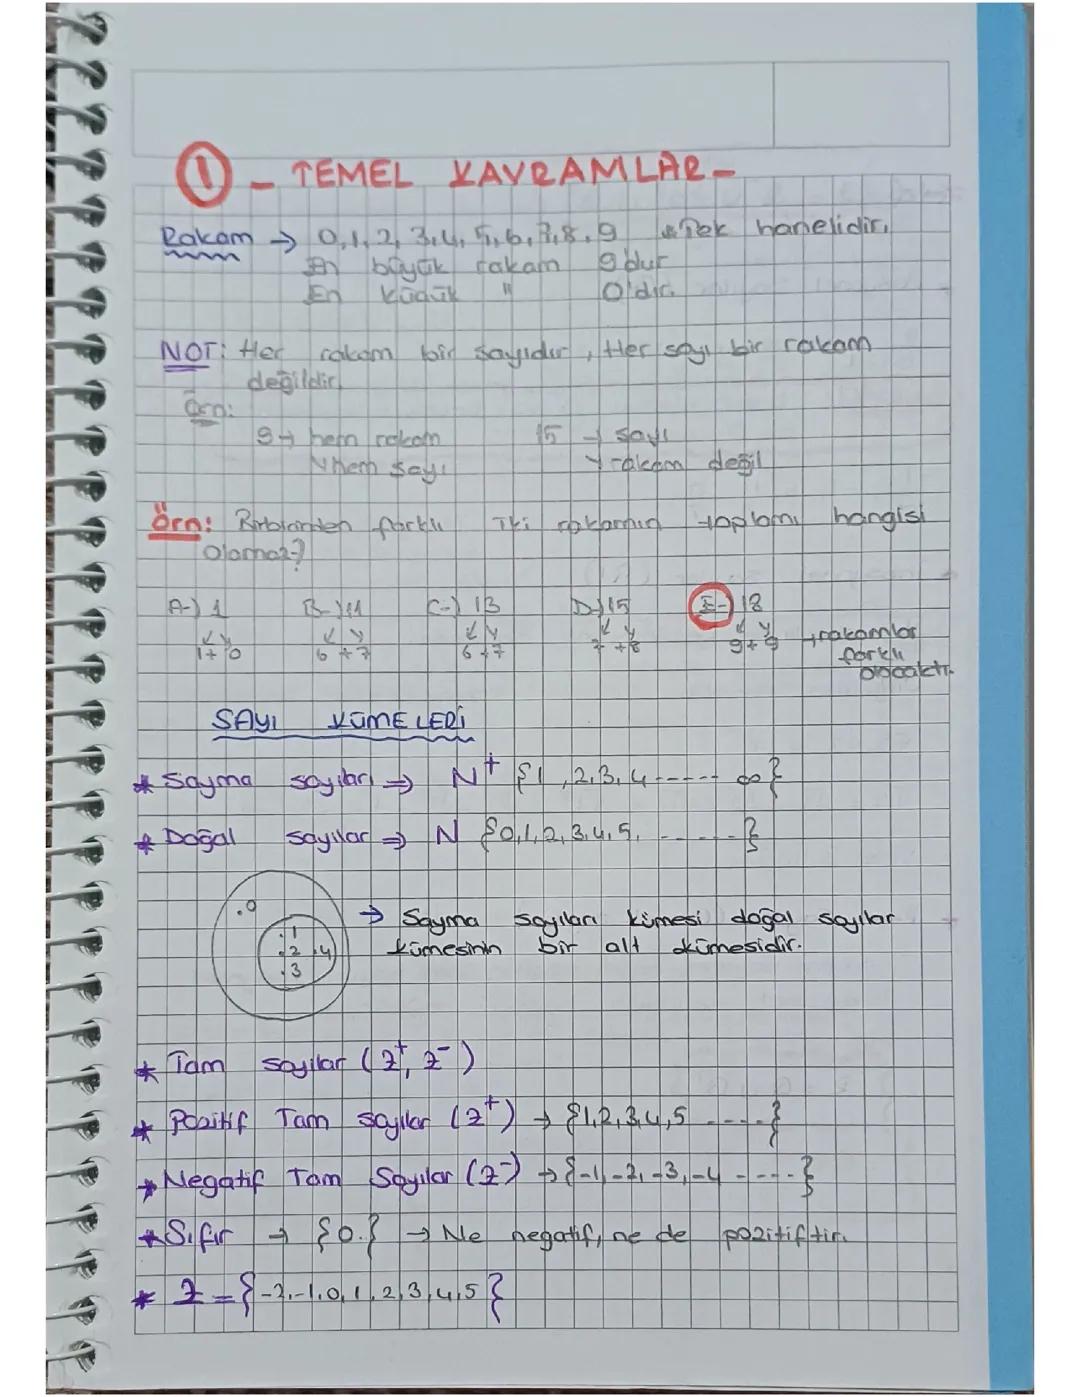 1 - TEMEL KAVRAMLAR -
Rakam → 0,1,2,3,4,5,6,7,8,9 * Tek hanelidir.
En büyük rakam 9'dur
En küçük " 0'dır.
NOT: Her rakam bir sayıdır, Her sayı bir rakam
değildir.
Örn:
9 → hem rakam 15 → sayı
↘ hem sayı ↘ rakam değil
Örn: Birbirinden farklı İki rakamın toplamı hangisi
Olamaz?
A-) 1 B-) 11 C-) 13 D-) 15 E-) 18
1+0 6+7 6+7 7+8 9+9 → rakamlar
farklı
olacaktı.
SAYI KÜMELERİ
* Sayma sayıları ⇒ N⁺ {1,2,3,4----- ∞}
* Doğal sayılar ⇒ N {0,1,2,3,4,5, -----}
.0
.1
.2 .4
.3
→ Sayma sayıları kümesi doğal sayılar
kümesinin bir alt kümesidir.
* Tam sayılar (Z⁺, Z⁻)
* Pozitif Tam sayılar (Z⁺) → {1,2,3,4,5 ----}
* Negatif Tam Sayılar (Z⁻) → {-1,-2,-3,-4 ----}
* Sıfır → {0.} → Ne negatif, ne de pozitiftir.
* Z = {-2,-1,0,1,2,3,4,5}